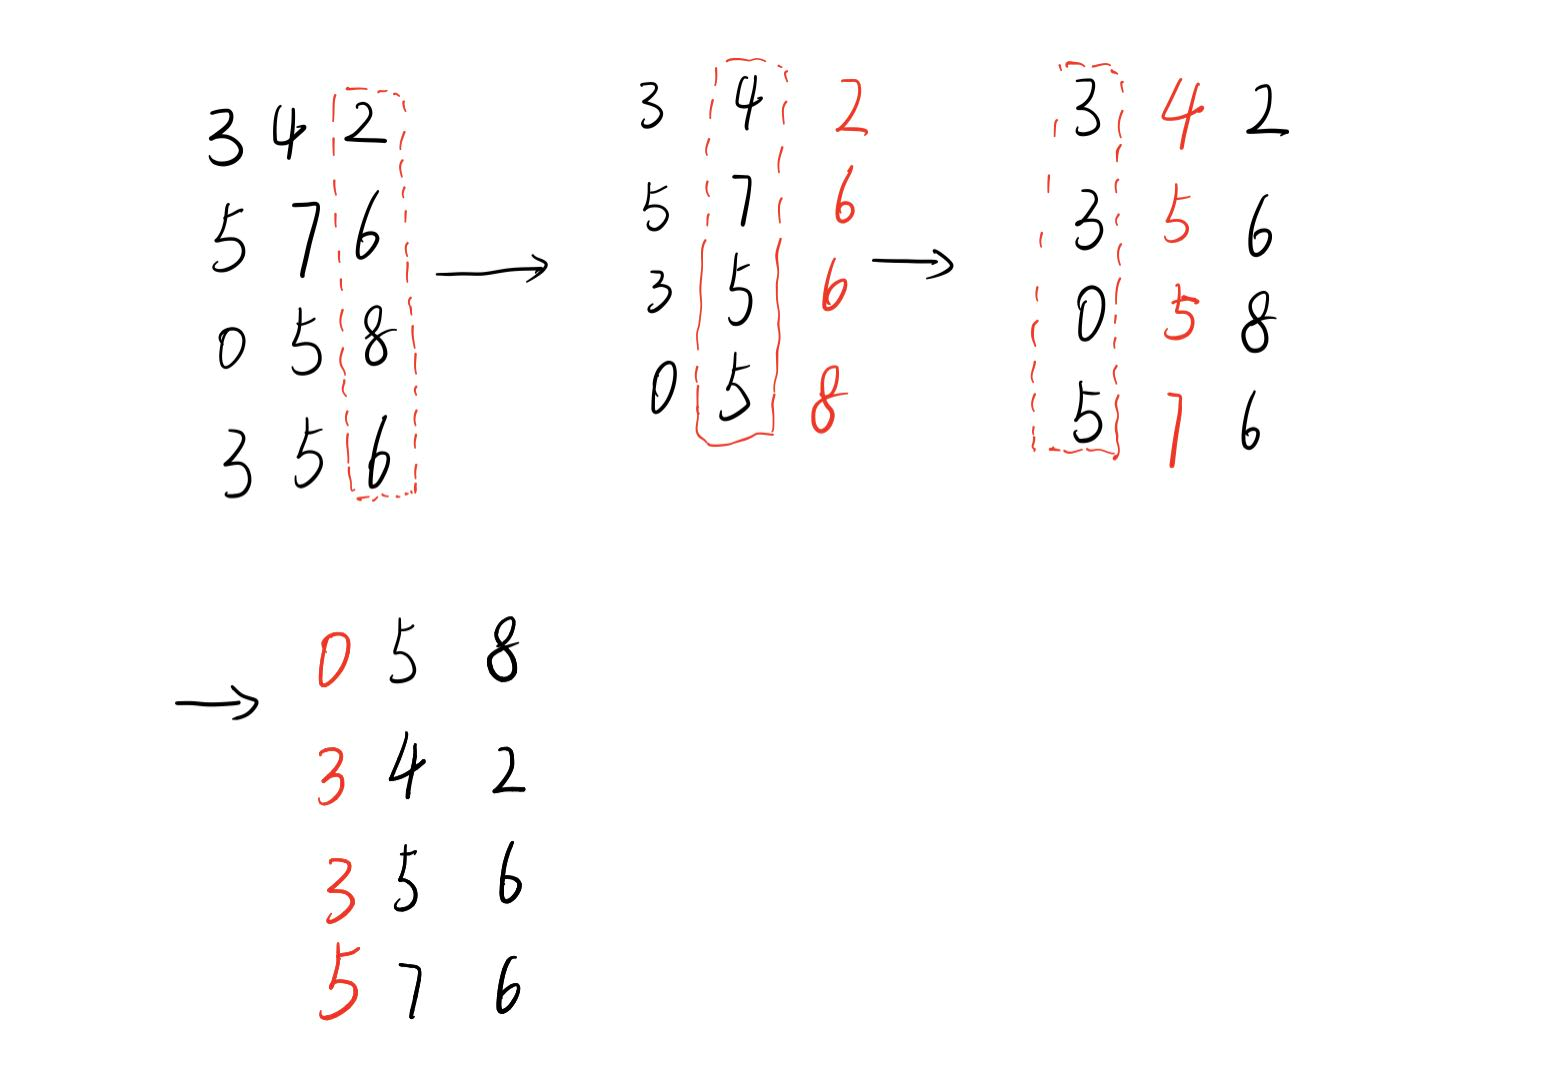 3 4 2
5 7 6
0 5 8
3 5 6
→
3 4 2
5 7 6
3 5 6
0 5 8
→
3 4 2
3 5 6
0 5 8
5 7 6
→
0 5 8
3 4 2
3 5 6
5 7 6